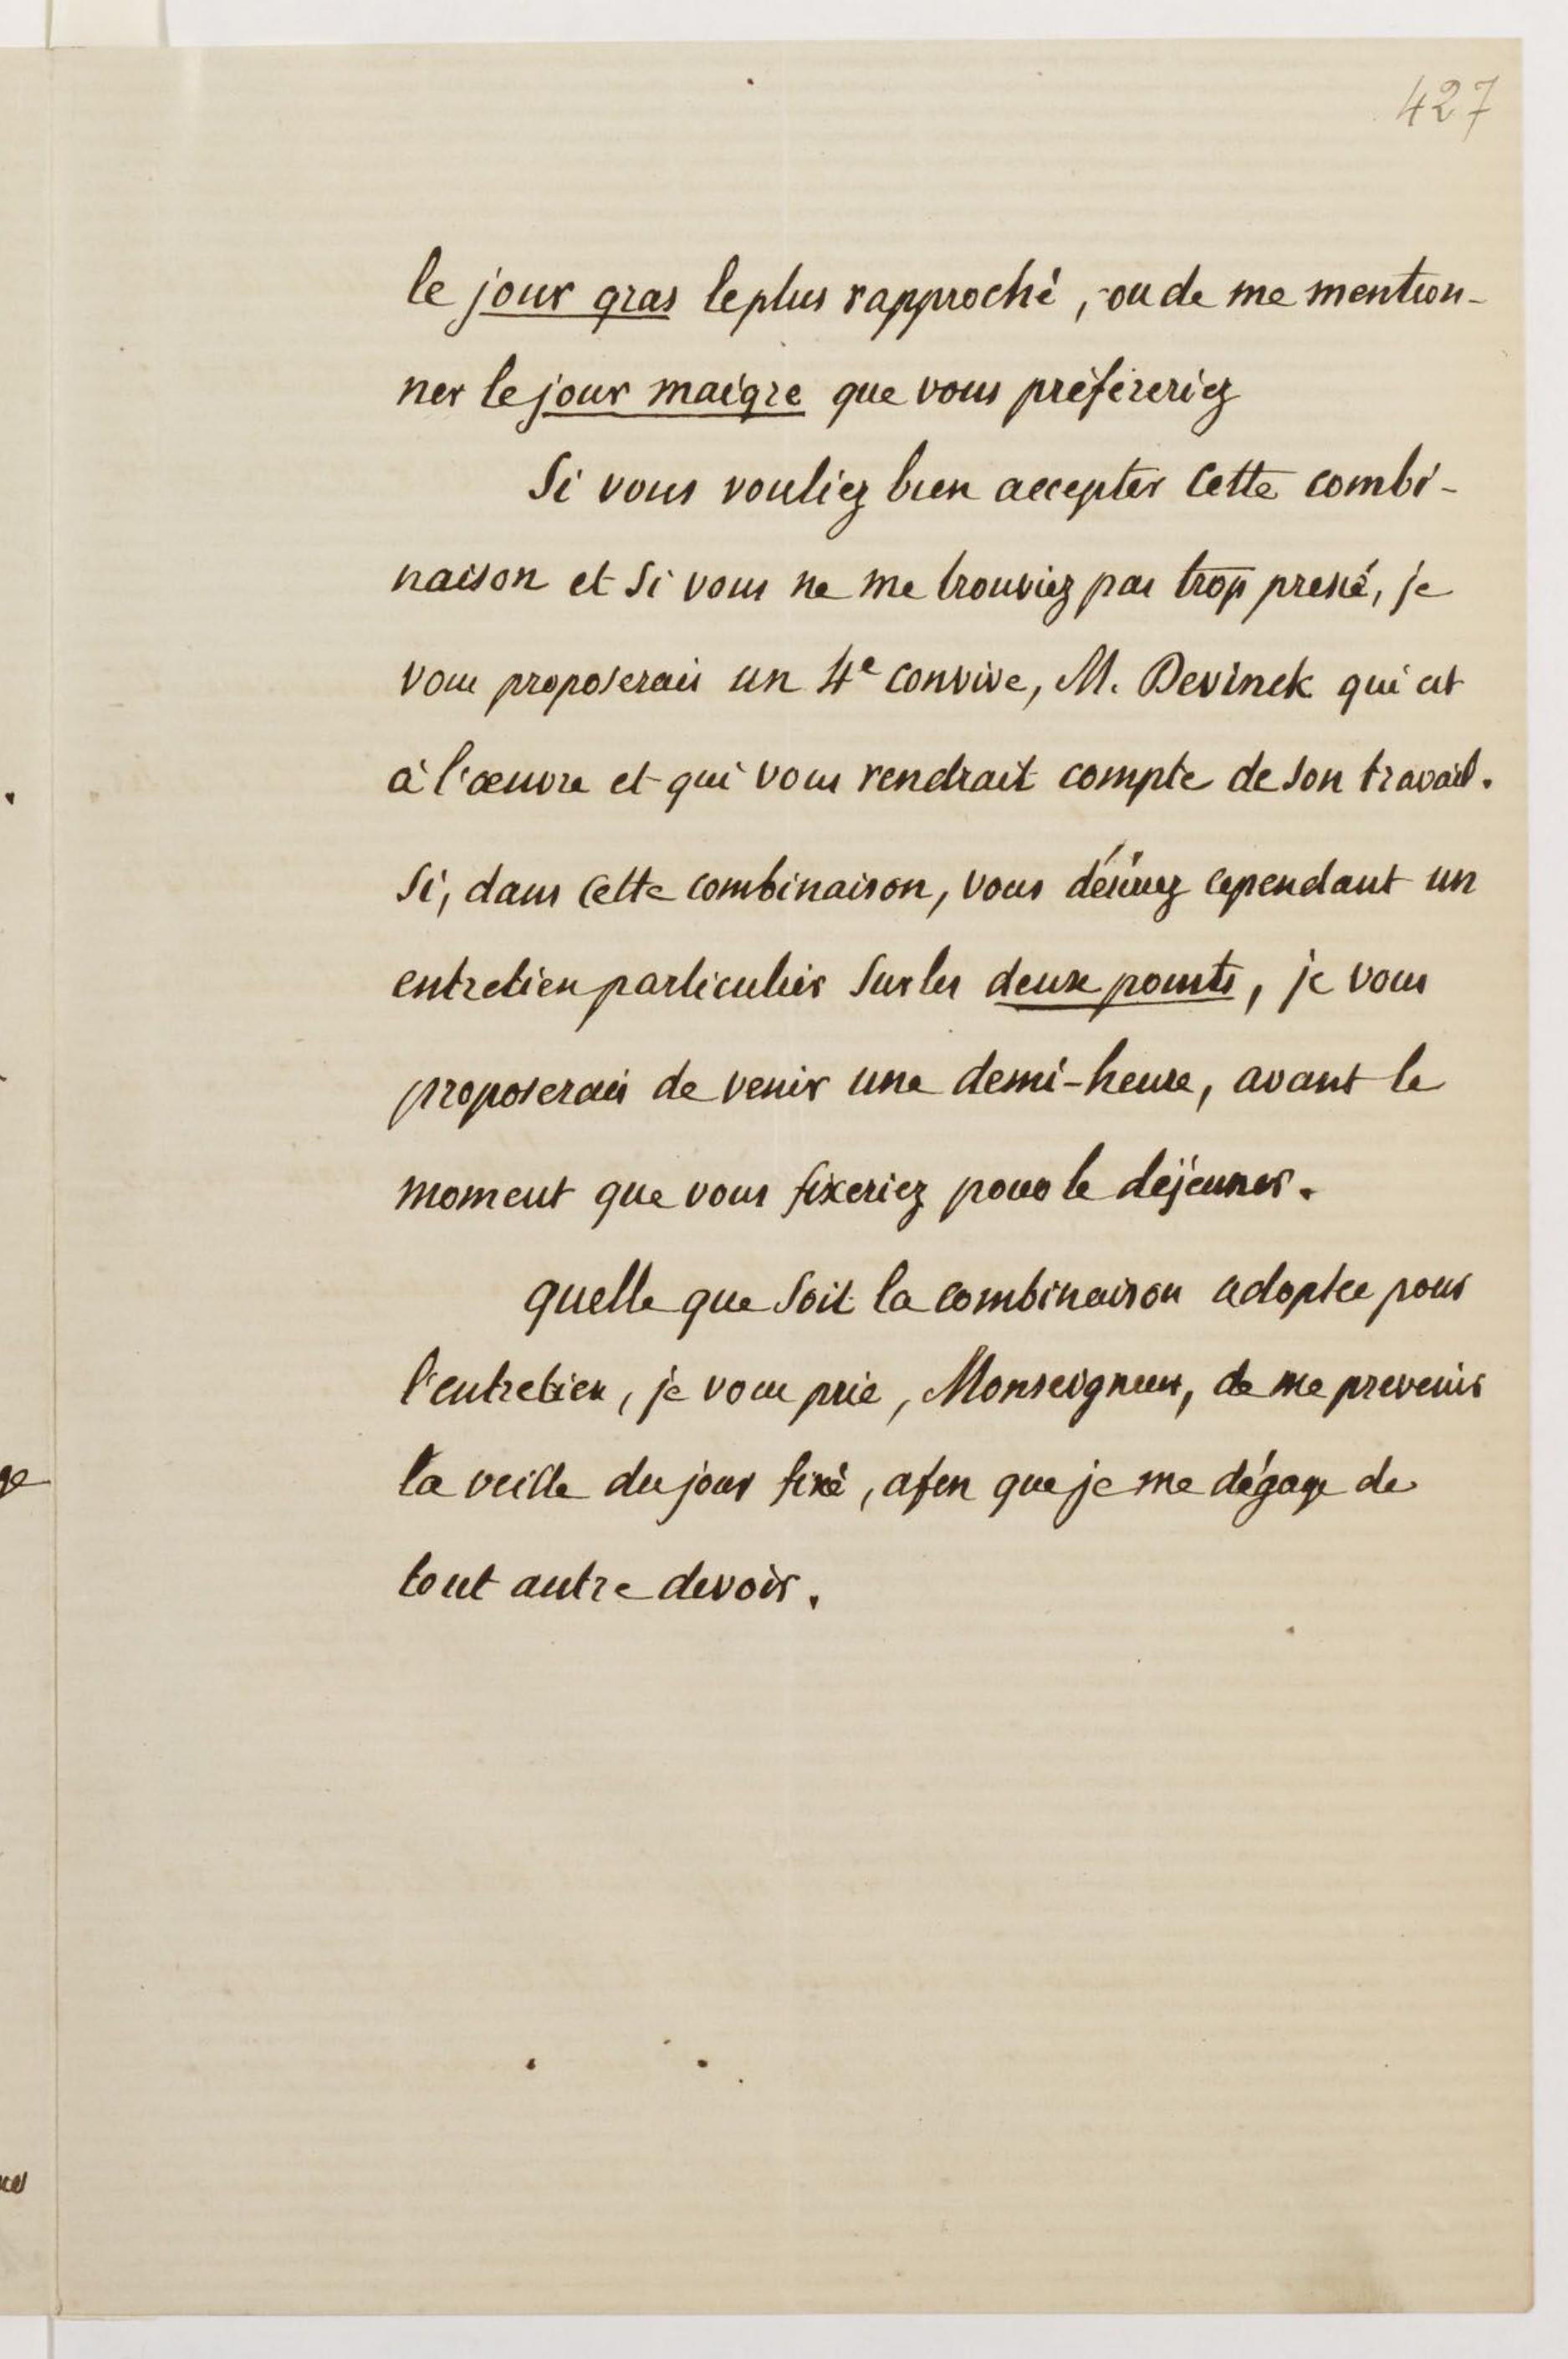 427
le jour gras le plus rapproché, ou de me mention-
ner le jour maigre que vous préféreriez
Si vous vouliez bien accepter cette combi-
naison et si vous ne me trouviez pas trop pressé, je
vous proposerais un 4e convive, M. Devinck qui est
à l'œuvre et qui vous rendrait compte de son travail.
Si, dans cette combinaison, vous désiriez cependant un
entretien particulier sur les deux points, je vous
proposerais de venir une demi-heure, avant le
moment que vous fixeriez pour le déjeuner.
quelle que soit la combinaison adoptée pour
l'entretien, je vous prie, Monseigneur, de me prevenir
la veille du jour fixé, afin que je me dégage de
tout autre devoir.